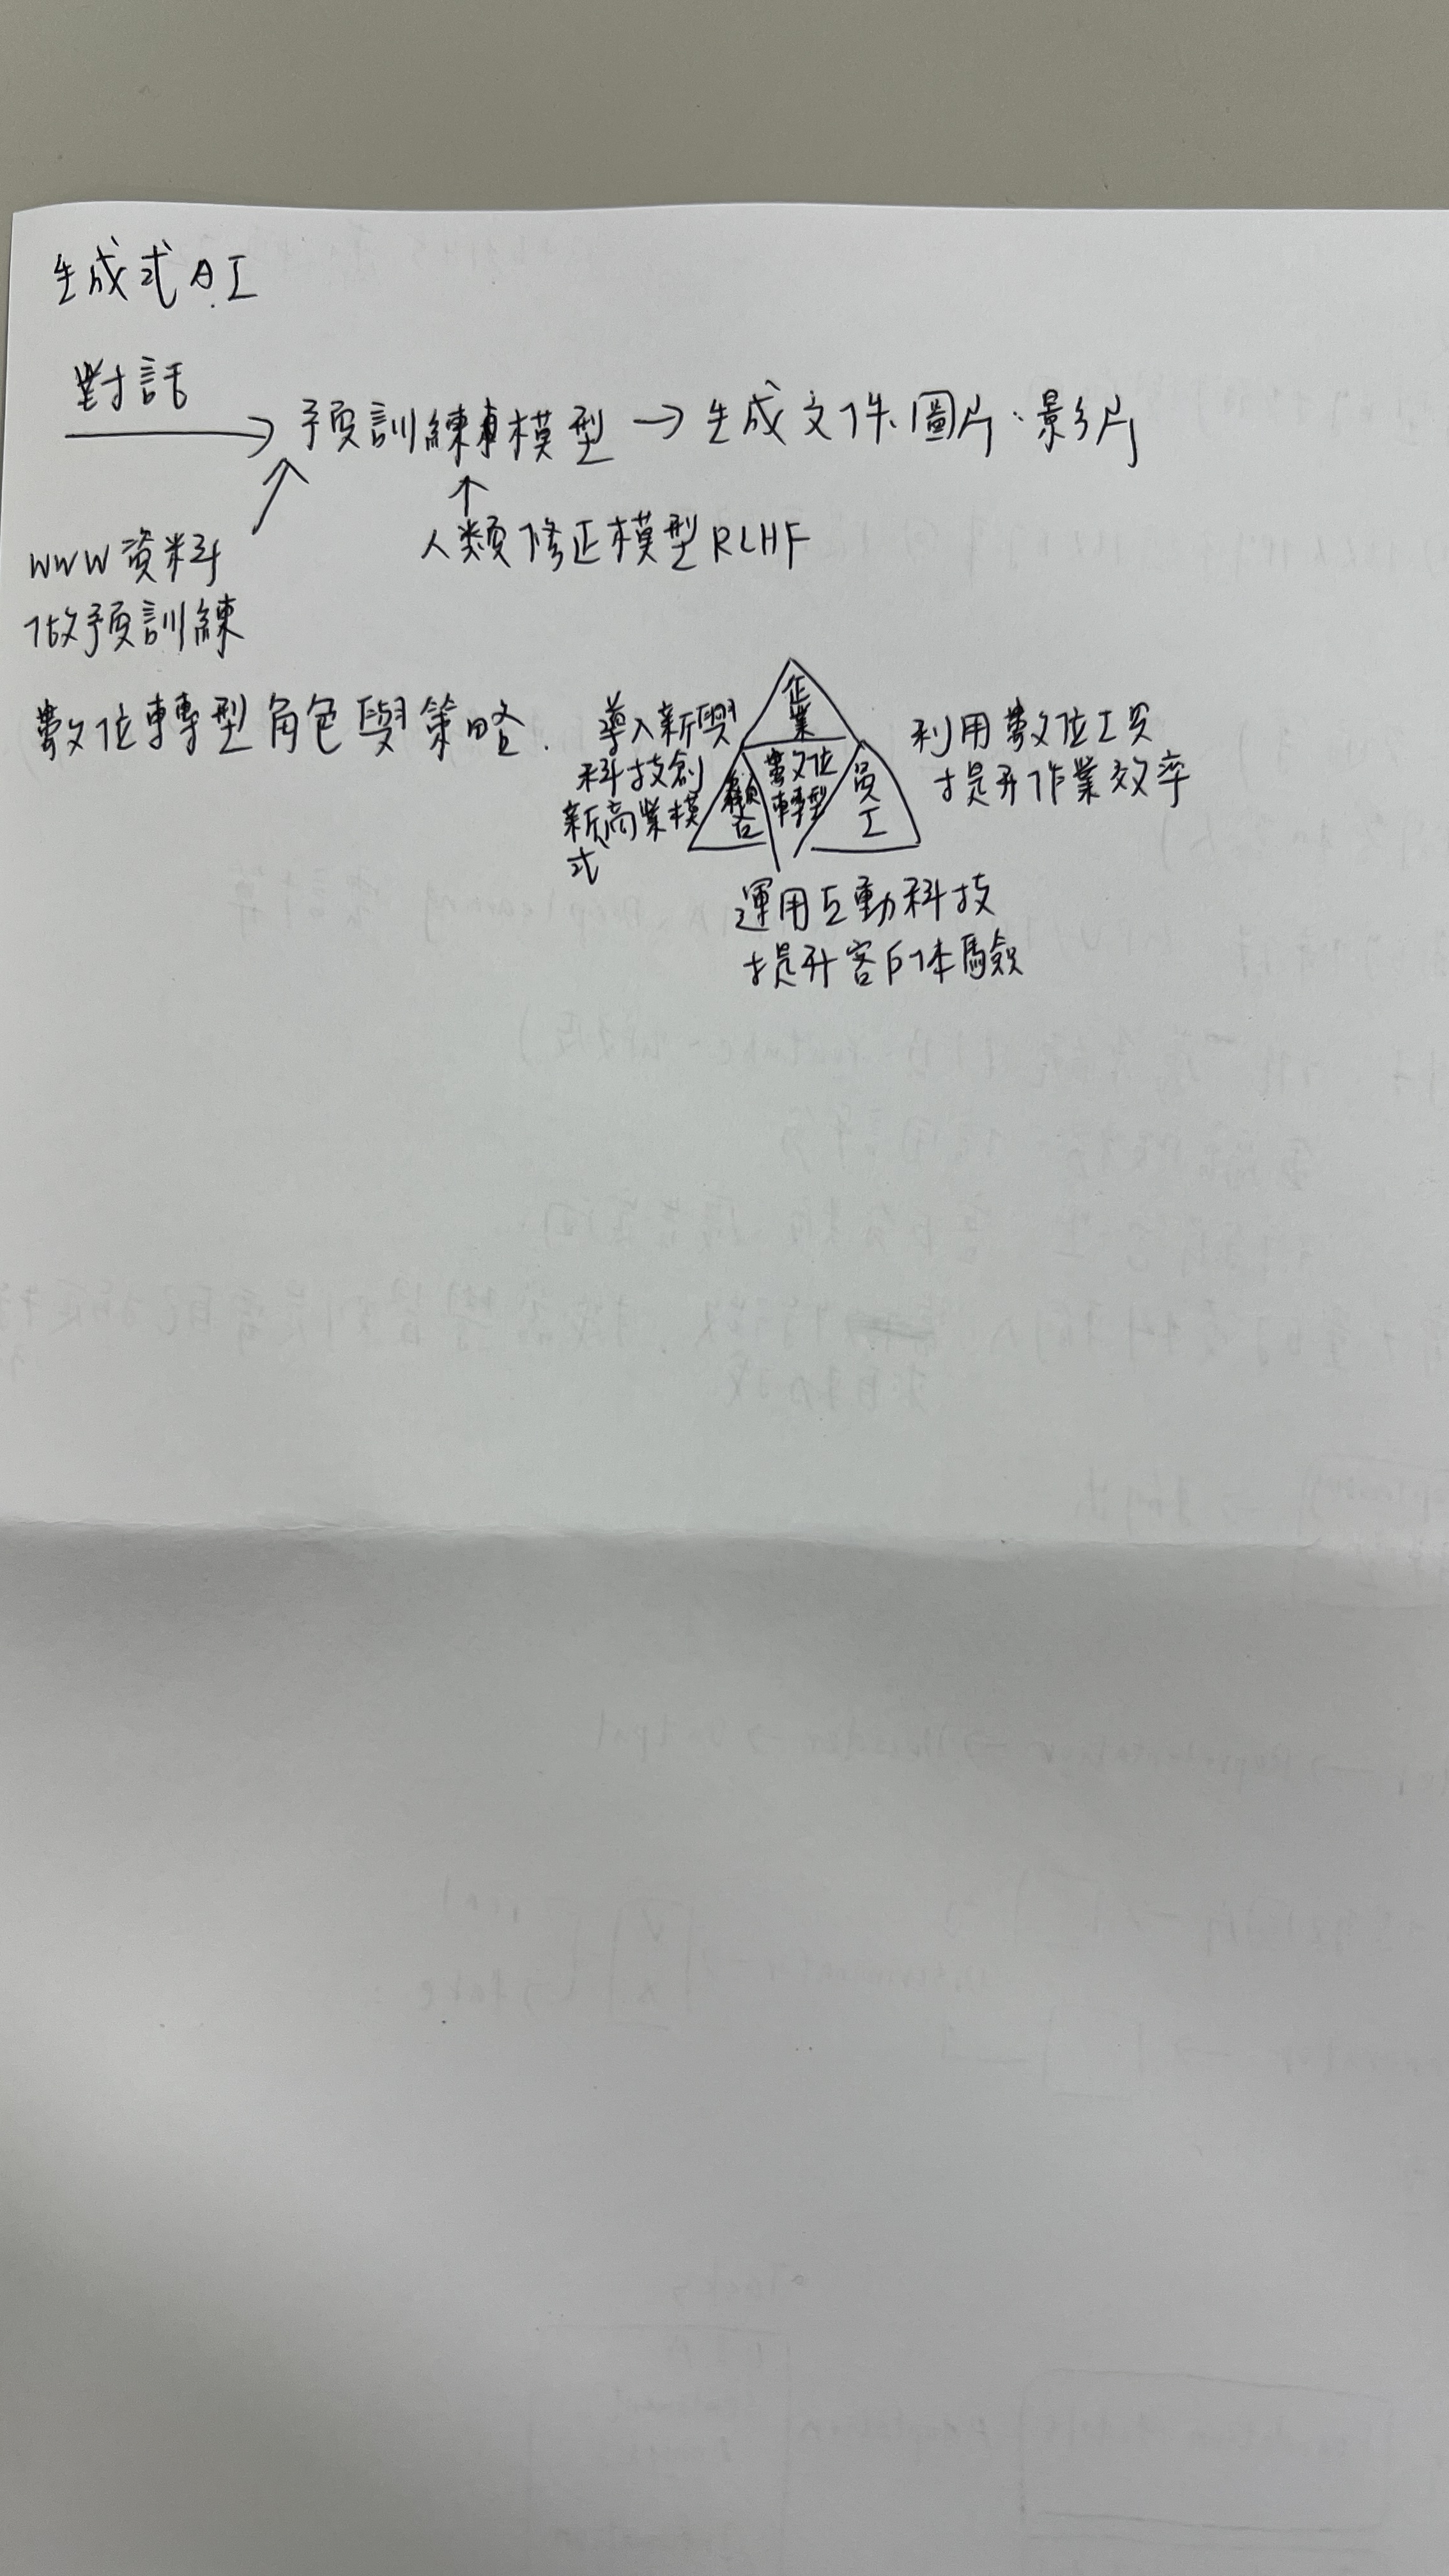 生成式AI
對話
預訓練模型 → 生成文件、圖片、影片
WWW資料
做預訓練
人類修正模型RLHF
數位轉型角色與策略.
導入新興
科技創
新商業模
式
企
業
數位
轉型
顧
客
員
工
利用數位工具
提升作業效率
運用互動科技
提升客戶体驗